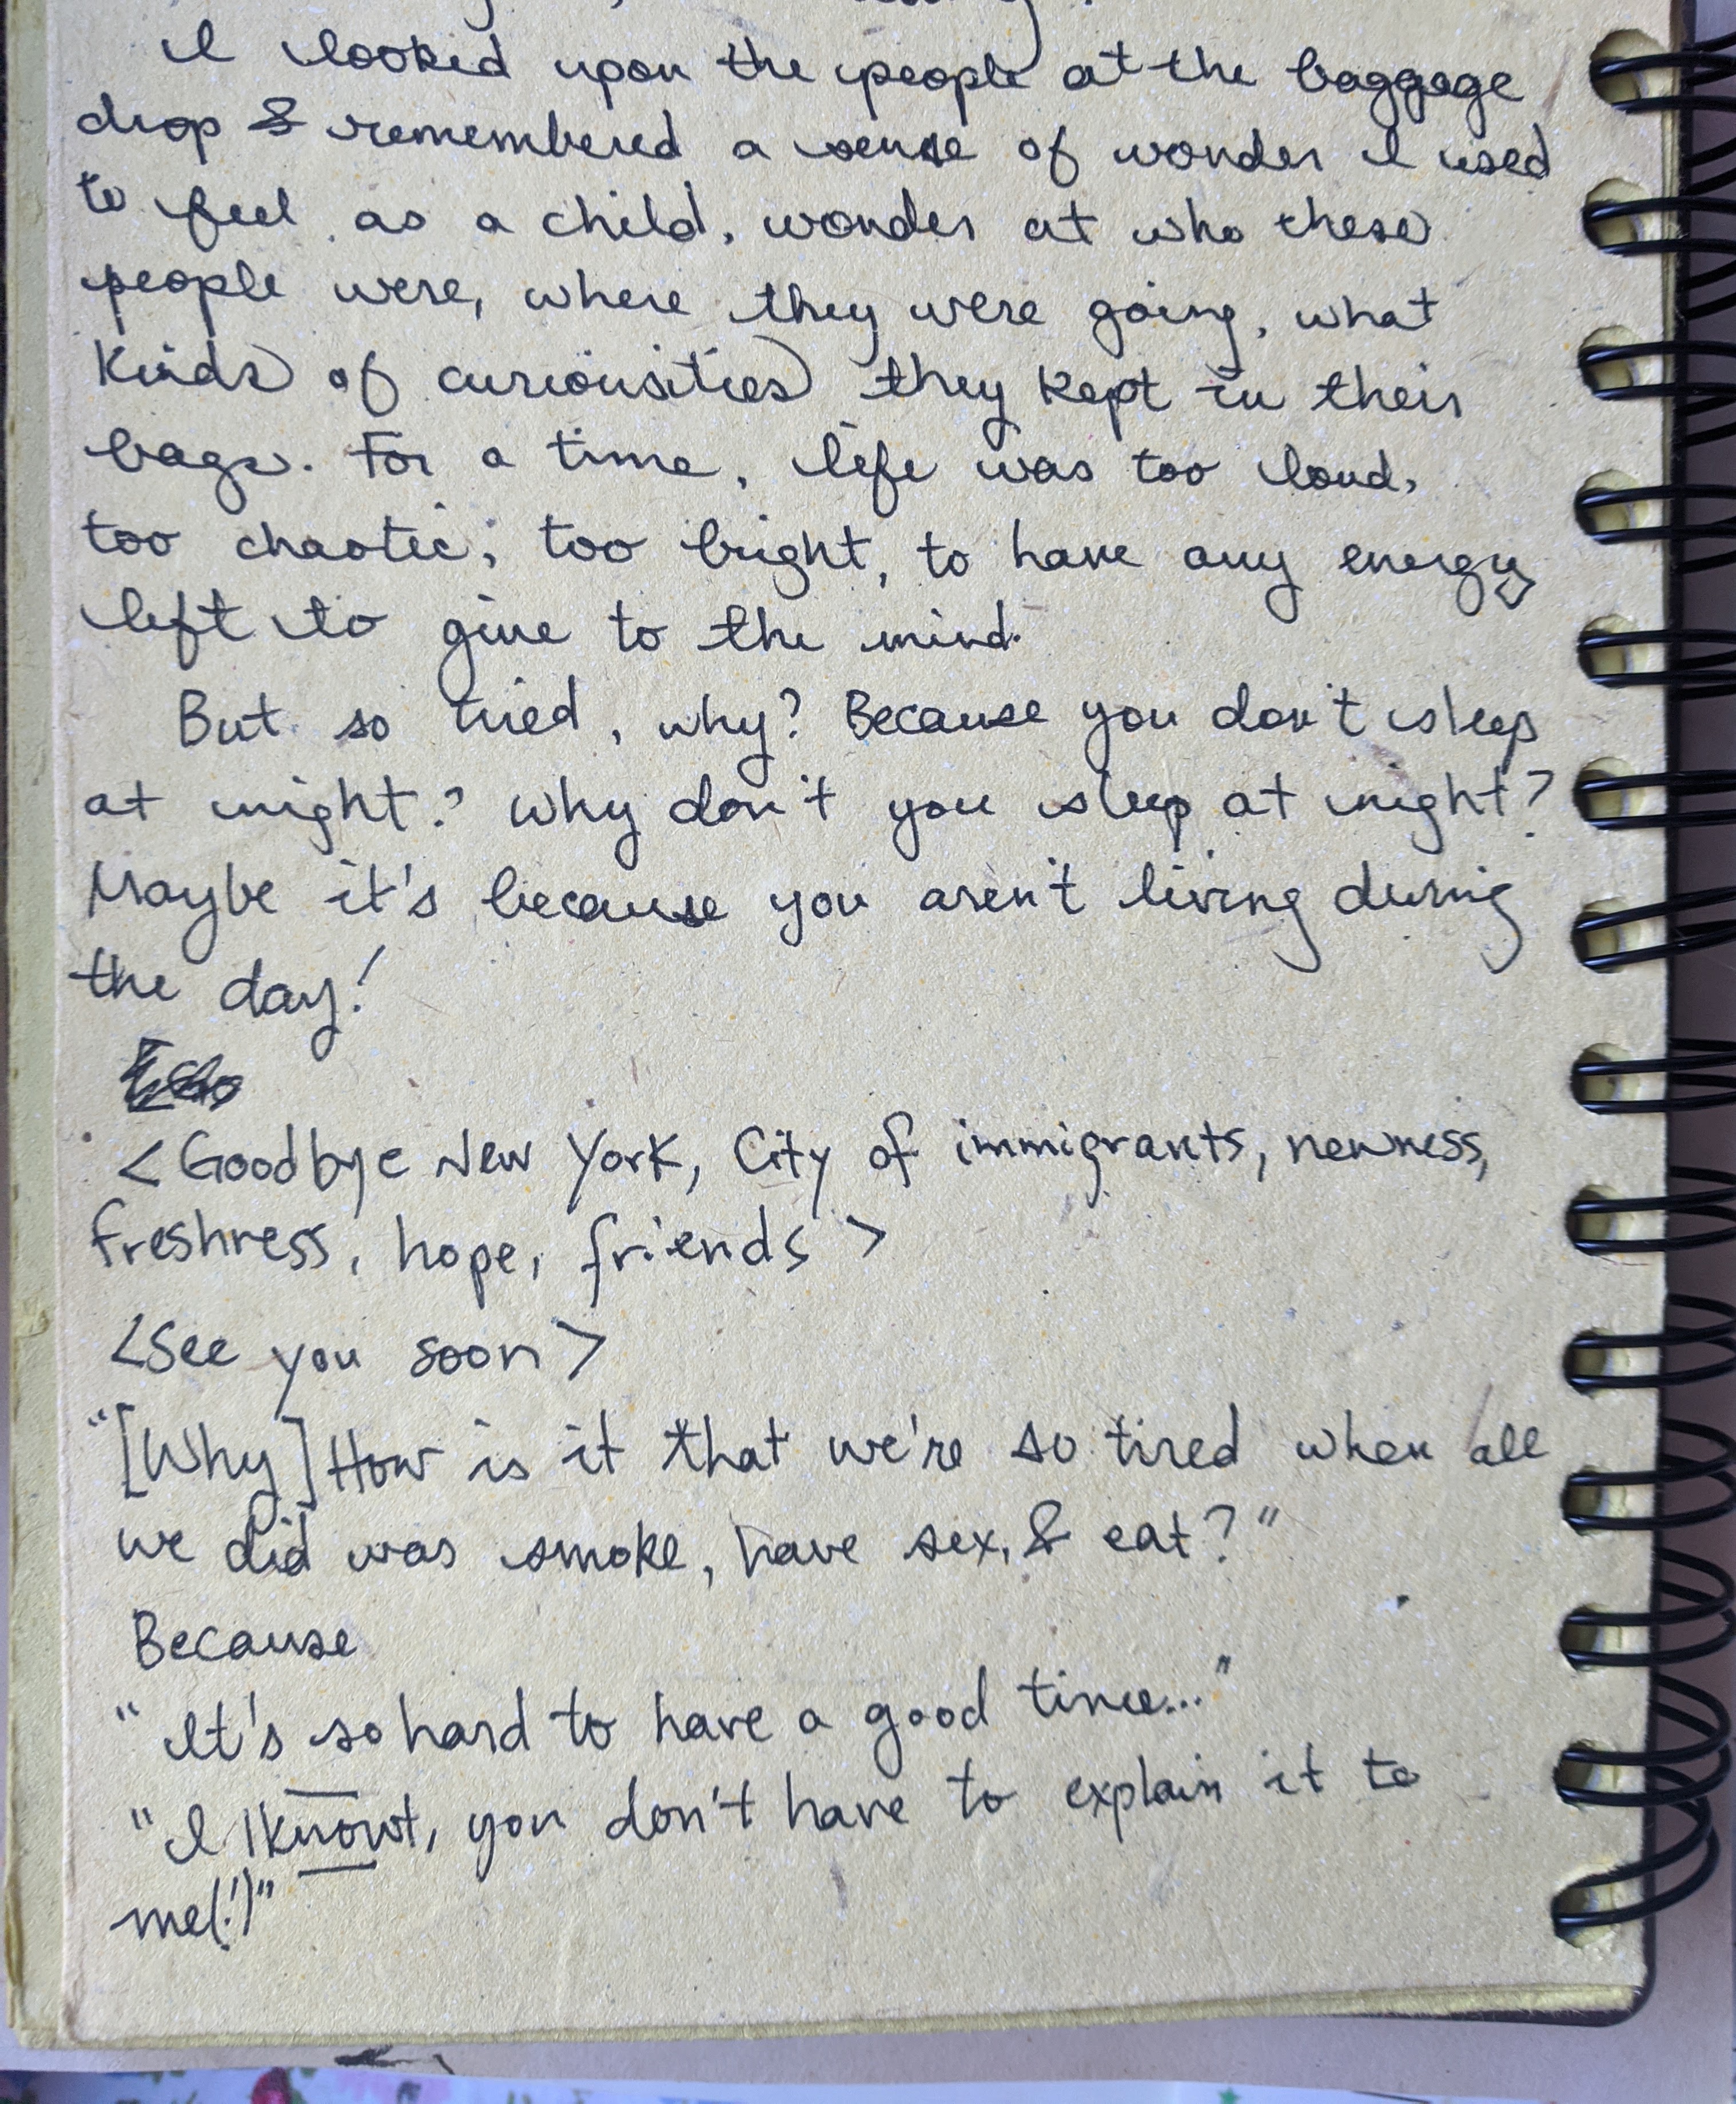 I looked upon the people at the baggage
drop & remembered a sense of wonder I used
to feel as a child, wonder at who these
people were, where they were going, what
kinds of curiousities they kept in their
bags. For a time, life was too loud,
too chaotic, too bright, to have any energy
left to give to the mind.
But so tired, why? Because you don't sleep
at night? Why don't you sleep at night?
Maybe it's because you aren't living during
the day!
<Goodbye New York, City of immigrants, newness,
freshness, hope, friends>
<See you soon>
"[Why] How is it that we're so tired when all
we did was smoke, have sex, & eat?"
Because
"It's so hard to have a good time..."
"I know, you don't have to explain it to
me(!)"